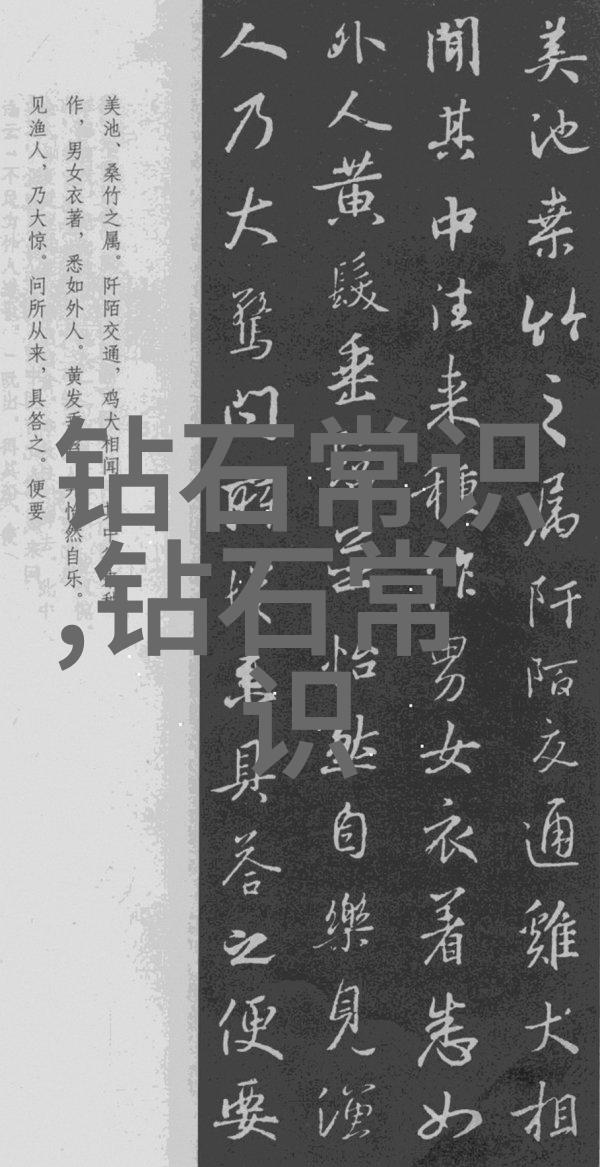 美池桒竹之属阡陌交通雞犬相
聞其中往来種作男女衣着悉如
外人黄髮垂並怡然自樂見漁
人乃大驚問所来具答之便要
美池、桑竹之属。阡陌交通，鸡犬相闻
作，男女衣著，悉如外人。黄发怡然自乐。
见渔人，乃大惊。问所从来，具答之。便要
钻石常识
,钻石常
识